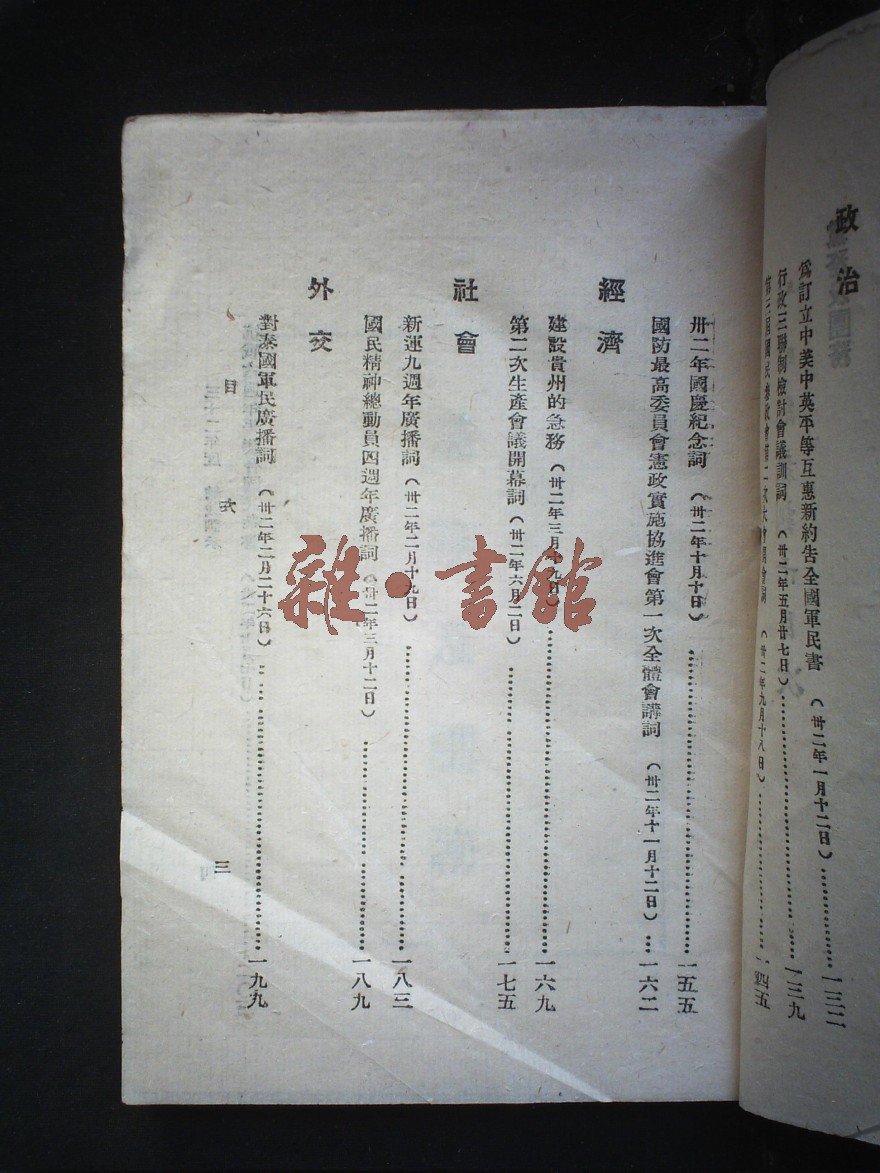 政治
為訂立中美中英平等互惠新約告全國軍民書(卅二年一月十二日)…一三二
行政三聯制檢討會議訓詞(卅二年五月廿七日)…一三九
第三屆國民參政會第二次大會開會詞(卅二年九月十八日)…一四五
卅二年國慶紀念詞(卅二年十月十日)…一五五
國防最高委員會憲政實施協進會第一次全體會講詞(卅二年十一月十二日)…一六二
經濟
建設貴州的急務(卅二年三月十九日)…一六九
第二次生產會議開幕詞(卅二年六月二日)…一七五
社會
新運九週年廣播詞(卅二年二月十九日)…一八三
國民精神總動員四週年廣播詞(卅二年三月十二日)…一八九
外交
對泰國軍民廣播詞(卅二年二月二十六日)…一九九
目次 三
雜·書館